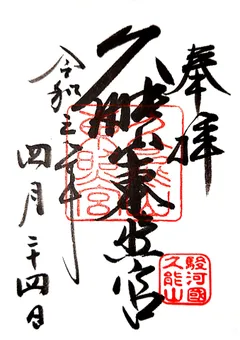 奉拝
駿河國
久能山
久能山東照宮
令和三年
四月二十四日